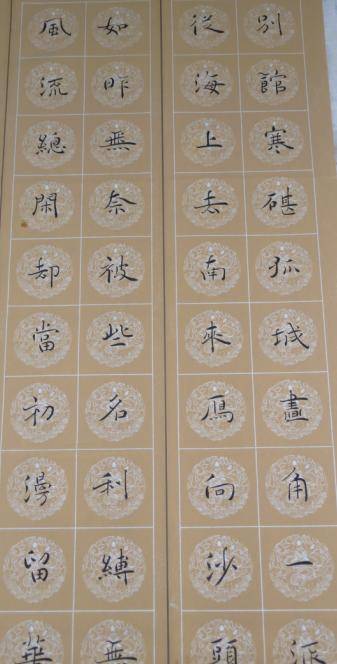 別館寒碪孤城畫角一派
從海上去南來鴈向沙頭
如昨無奈被些名利縛無
風流總閑却當初漫留華